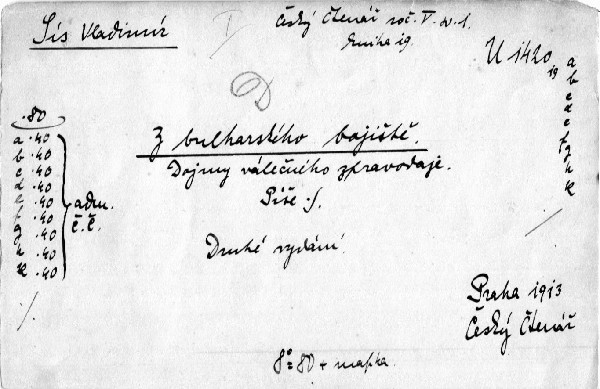 Sís Vladimír
Český Čtenář roč. V. sv. 1.
kniha 19.
U 1420
19
a
b
c
d
e
f
g
h
k
·80
a ·40
b ·40
c ·40
d ·40
e ·40
f ·40
g ·40
h ·40
k ·40
adm.
č.č.
Z bulharského bojiště.
Dojmy válečného zpravodaje.
Píše ·/.
Druhé vydání.
Praha 1913
Český Čtenář
8° 80 + mapka.